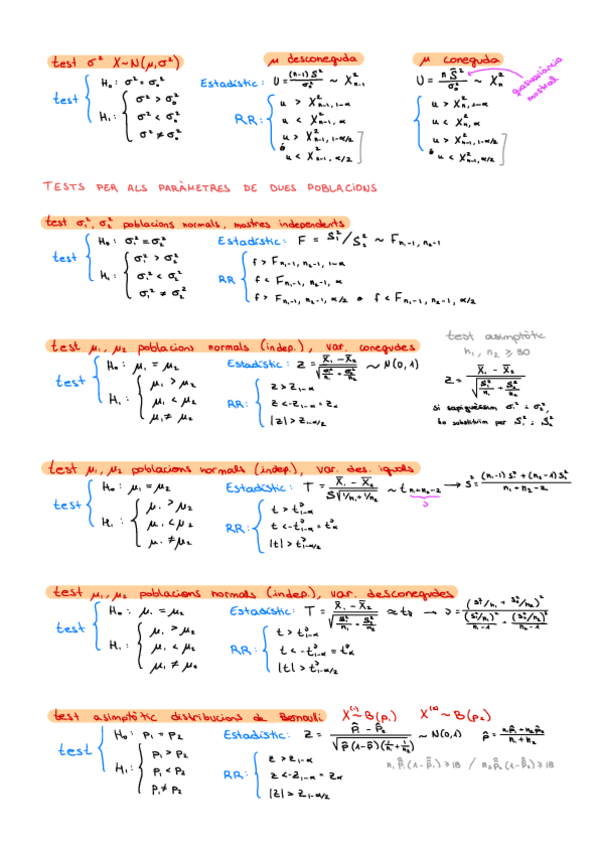 test σ² X~N(μ,σ²)
μ desconeguda
μ coneguda
test
H₀: σ² = σ₀²
H₁: σ² > σ₀²
σ² < σ₀²
σ² ≠ σ₀²
Estadístic: U = (n-1)S²/σ₀² ~ X²ₙ₋₁
U = nŜ²/σ₀² ~ X²ₙ
quasivariància mostral
RR: u > X²ₙ₋₁, ₁₋α
u < X²ₙ₋₁, α
u > X²ₙ₋₁, ₁₋α/₂
ó u < X²ₙ₋₁, α/₂
u > X²ₙ, ₁₋α
u < X²ₙ, α
u > X²ₙ₋₁, ₁₋α/₂
ó u < X²ₙ, α/₂
TESTS PER ALS PARÀMETRES DE DUES POBLACIONS
test σ₁², σ₂² poblacions normals, mostres independents
test
H₀: σ₁² = σ₂²
H₁: σ₁² > σ₂²
σ₁² < σ₂²
σ₁² ≠ σ₂²
Estadístic: F = S₁²/S₂² ~ Fₙ₁₋₁, ₙ₂₋₁
RR f > Fₙ₁₋₁, ₙ₂₋₁, ₁₋α
f < Fₙ₁₋₁, ₙ₂₋₁, α
f > Fₙ₁₋₁, ₙ₂₋₁, α/₂ o f < Fₙ₁₋₁, ₙ₂₋₁, α/₂
test μ₁, μ₂ poblacions normals (indep.), var. conegudes
test
H₀: μ₁ = μ₂
H₁: μ₁ > μ₂
μ₁ < μ₂
μ₁ ≠ μ₂
Estadístic: Z = (X̄₁ - X̄₂)/√(σ₁²/n₁ + σ₂²/n₂) ~ N(0,1)
RR: z > z₁₋α
z < -z₁₋α = zα
|z| > z₁₋α/₂
test asimptòtic
n₁, n₂ ≥ 30
Z = (X̄₁ - X̄₂)/√(S₁²/n₁ + S₂²/n₂)
si sapiguéssim σ₁² = σ₂²,
ho substituïm per S₁² = S₂²
test μ₁, μ₂ poblacions normals (indep.), var. des. iguals
test
H₀: μ₁ = μ₂
H₁: μ₁ > μ₂
μ₁ < μ₂
μ₁ ≠ μ₂
Estadístic: T = (X̄₁ - X̄₂)/(S√(1/n₁ + 1/n₂)) ~ tₙ₁₊ₙ₂₋₂ → S² = ((n₁-1)S₁² + (n₂-1)S₂²)/(n₁ + n₂ - 2)
ν
RR: t > t^ν₁₋α
t < -t^ν₁₋α = t^να
|t| > t^ν₁₋α/₂
test μ₁, μ₂ poblacions normals (indep.), var. desconegudes
test
H₀: μ₁ = μ₂
H₁: μ₁ > μ₂
μ₁ < μ₂
μ₁ ≠ μ₂
Estadístic: T = (X̄₁ - X̄₂)/√(S₁²/n₁ - S₂²/n₂) ≈ tν → ν = (S₁²/n₁ + S₂²/n₂)²/((S₁²/n₁)²/(n₁-1) - (S₂²/n₂)²/(n₂-1))
RR: t > t^ν₁₋α
t < -t^ν₁₋α = t^να
|t| > t^ν₁₋α/₂
test asimptòtic distribucions de Bernoulli X⁽¹⁾~B(p₁) X⁽²⁾~B(p₂)
test
H₀: p₁ = p₂
H₁: p₁ > p₂
p₁ < p₂
p₁ ≠ p₂
Estadístic: Z = (p̂₁ - p̂₂)/√(p̂(1-p̂)(1/n₁ + 1/n₂)) ~ N(0,1) p̂ = (n₁p̂₁ + n₂p̂₂)/(n₁ + n₂)
n₁p̂₁(1-p̂₁) ≥ 18 / n₂p̂₂(1-p̂₂) ≥ 18
RR: z > z₁₋α
z < -z₁₋α = zα
|z| > z₁₋α/₂